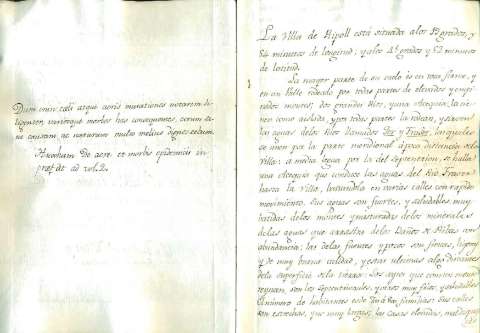 Dum enim cæli atque aeris mutationes notarem di-
ligenter, variosque morbos has consequentes, eorum sa-
ne causam ac naturam multo melius
Huxham De aere et morbis epidemicis in
præfat ad vol. 2.
La Villa de Ripoll está situada a los grados, y
54 minutos de longitud; y a los 4 grados y 12 minutos
de latitud.
La mayor parte de su suelo es en roca firme, y
en un Valle rodeado por todas partes de elevados y empi-
nados montes; dos grandes Rios, y una Azequia, la tie-
nen como aislada, y por todas partes la rodean, y
las aguas de los Rios llamados Ter y Fraser, las quales
se unen por la parte meridional á poca distancia de la
Villa: a media legua por la del septentrion, se halla
una Azequia que conduce las aguas del Rio Fraser
hasta la Villa, en varias calles con rapido
movimiento. Sus aguas son fuertes, y saludables, muy
batidas de los montes y mixturadas de los minerales
de las aguas que arrastra de los Baños de Ribas con
abundancia; las de las fuentes y pozos son finas, ligeras
y de muy buena calidad, y estas ultimas algo distantes
de la superficie de la tierra. Los ayres que comunmente
reynan, son los septentrionales, puros muy frios, y saludables
el numero de habitantes es de familias: sus calles
son estrechas, y no muy largas; las casas elevadas, mal